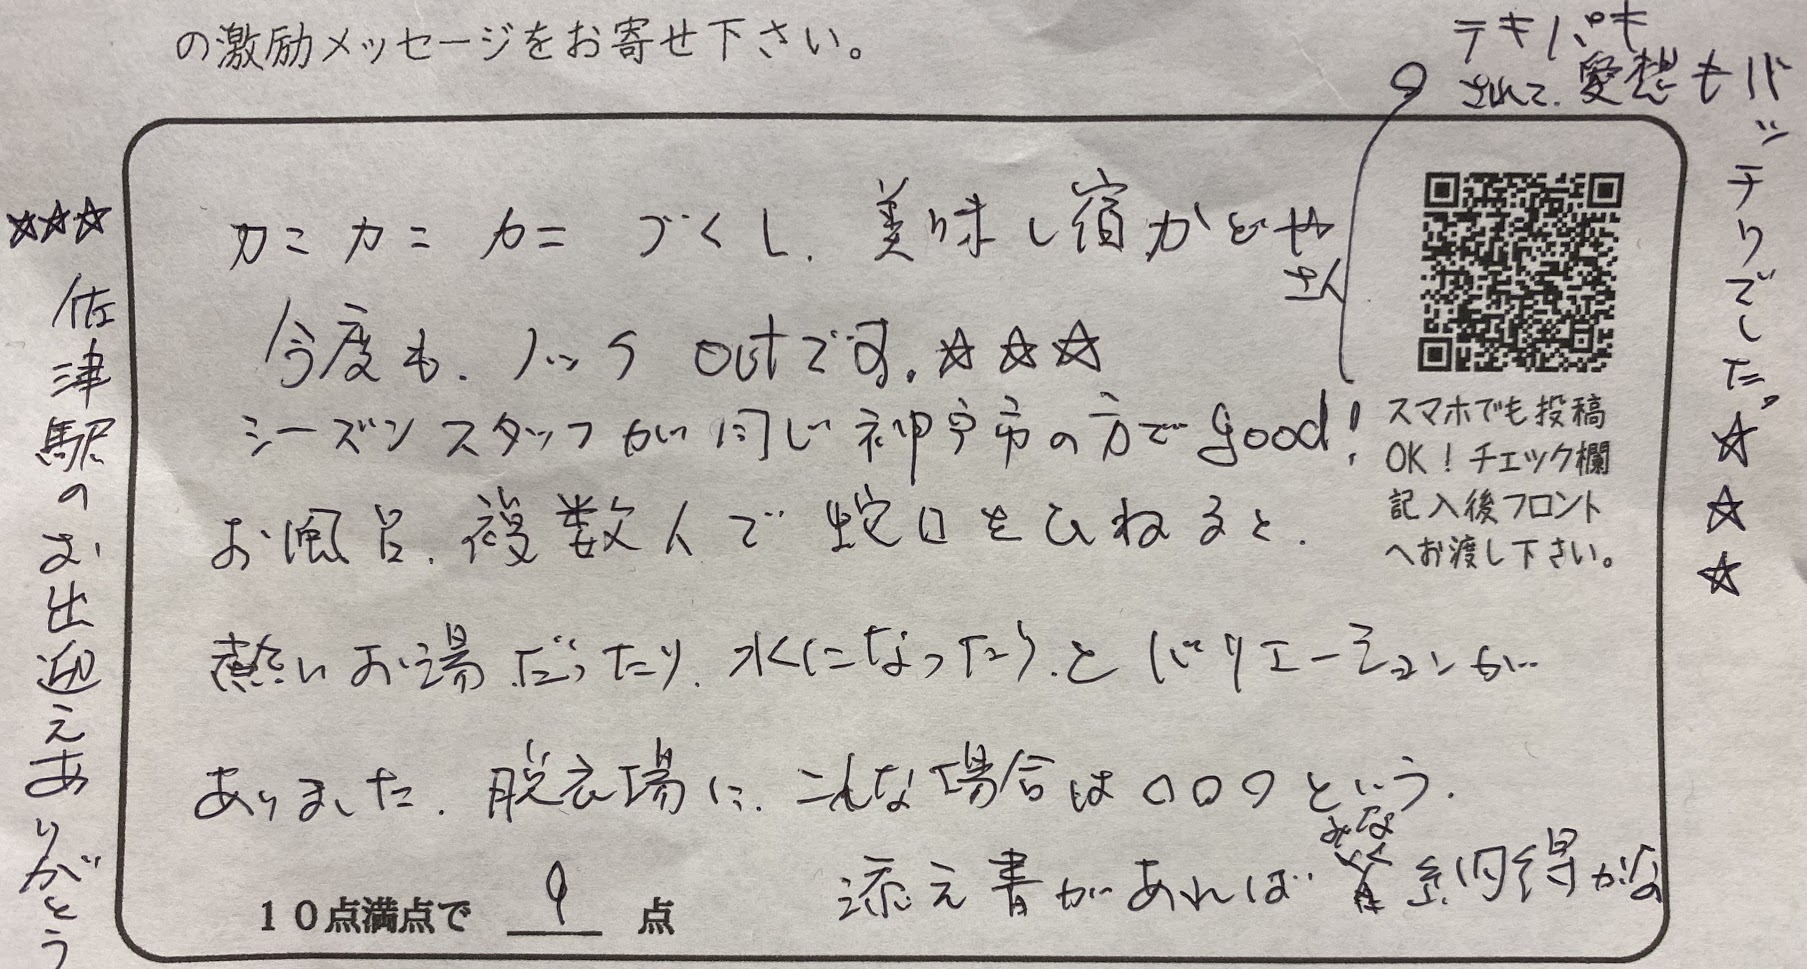 の激励メッセージをお寄せ下さい。
テキパキ
されて、愛想もバッチリでした。☆☆☆
カニカニカニづくし、美味し宿かどや
さん
今度も、ノックoutです。☆☆☆
シーズンスタッフが同じ神戸市の方でgood!
お風呂、複数人で蛇口をひねると、
熱いお湯だったり、水になったり、とバリエーションが
ありました、脱衣場に、こんな場合は〇〇〇という、
みな
添え書があれば皆納得かな
スマホでも投稿
OK！チェック欄
記入後フロント
へお渡し下さい。
10点満点で 9 点
☆☆☆佐津駅のお出迎えありがとう